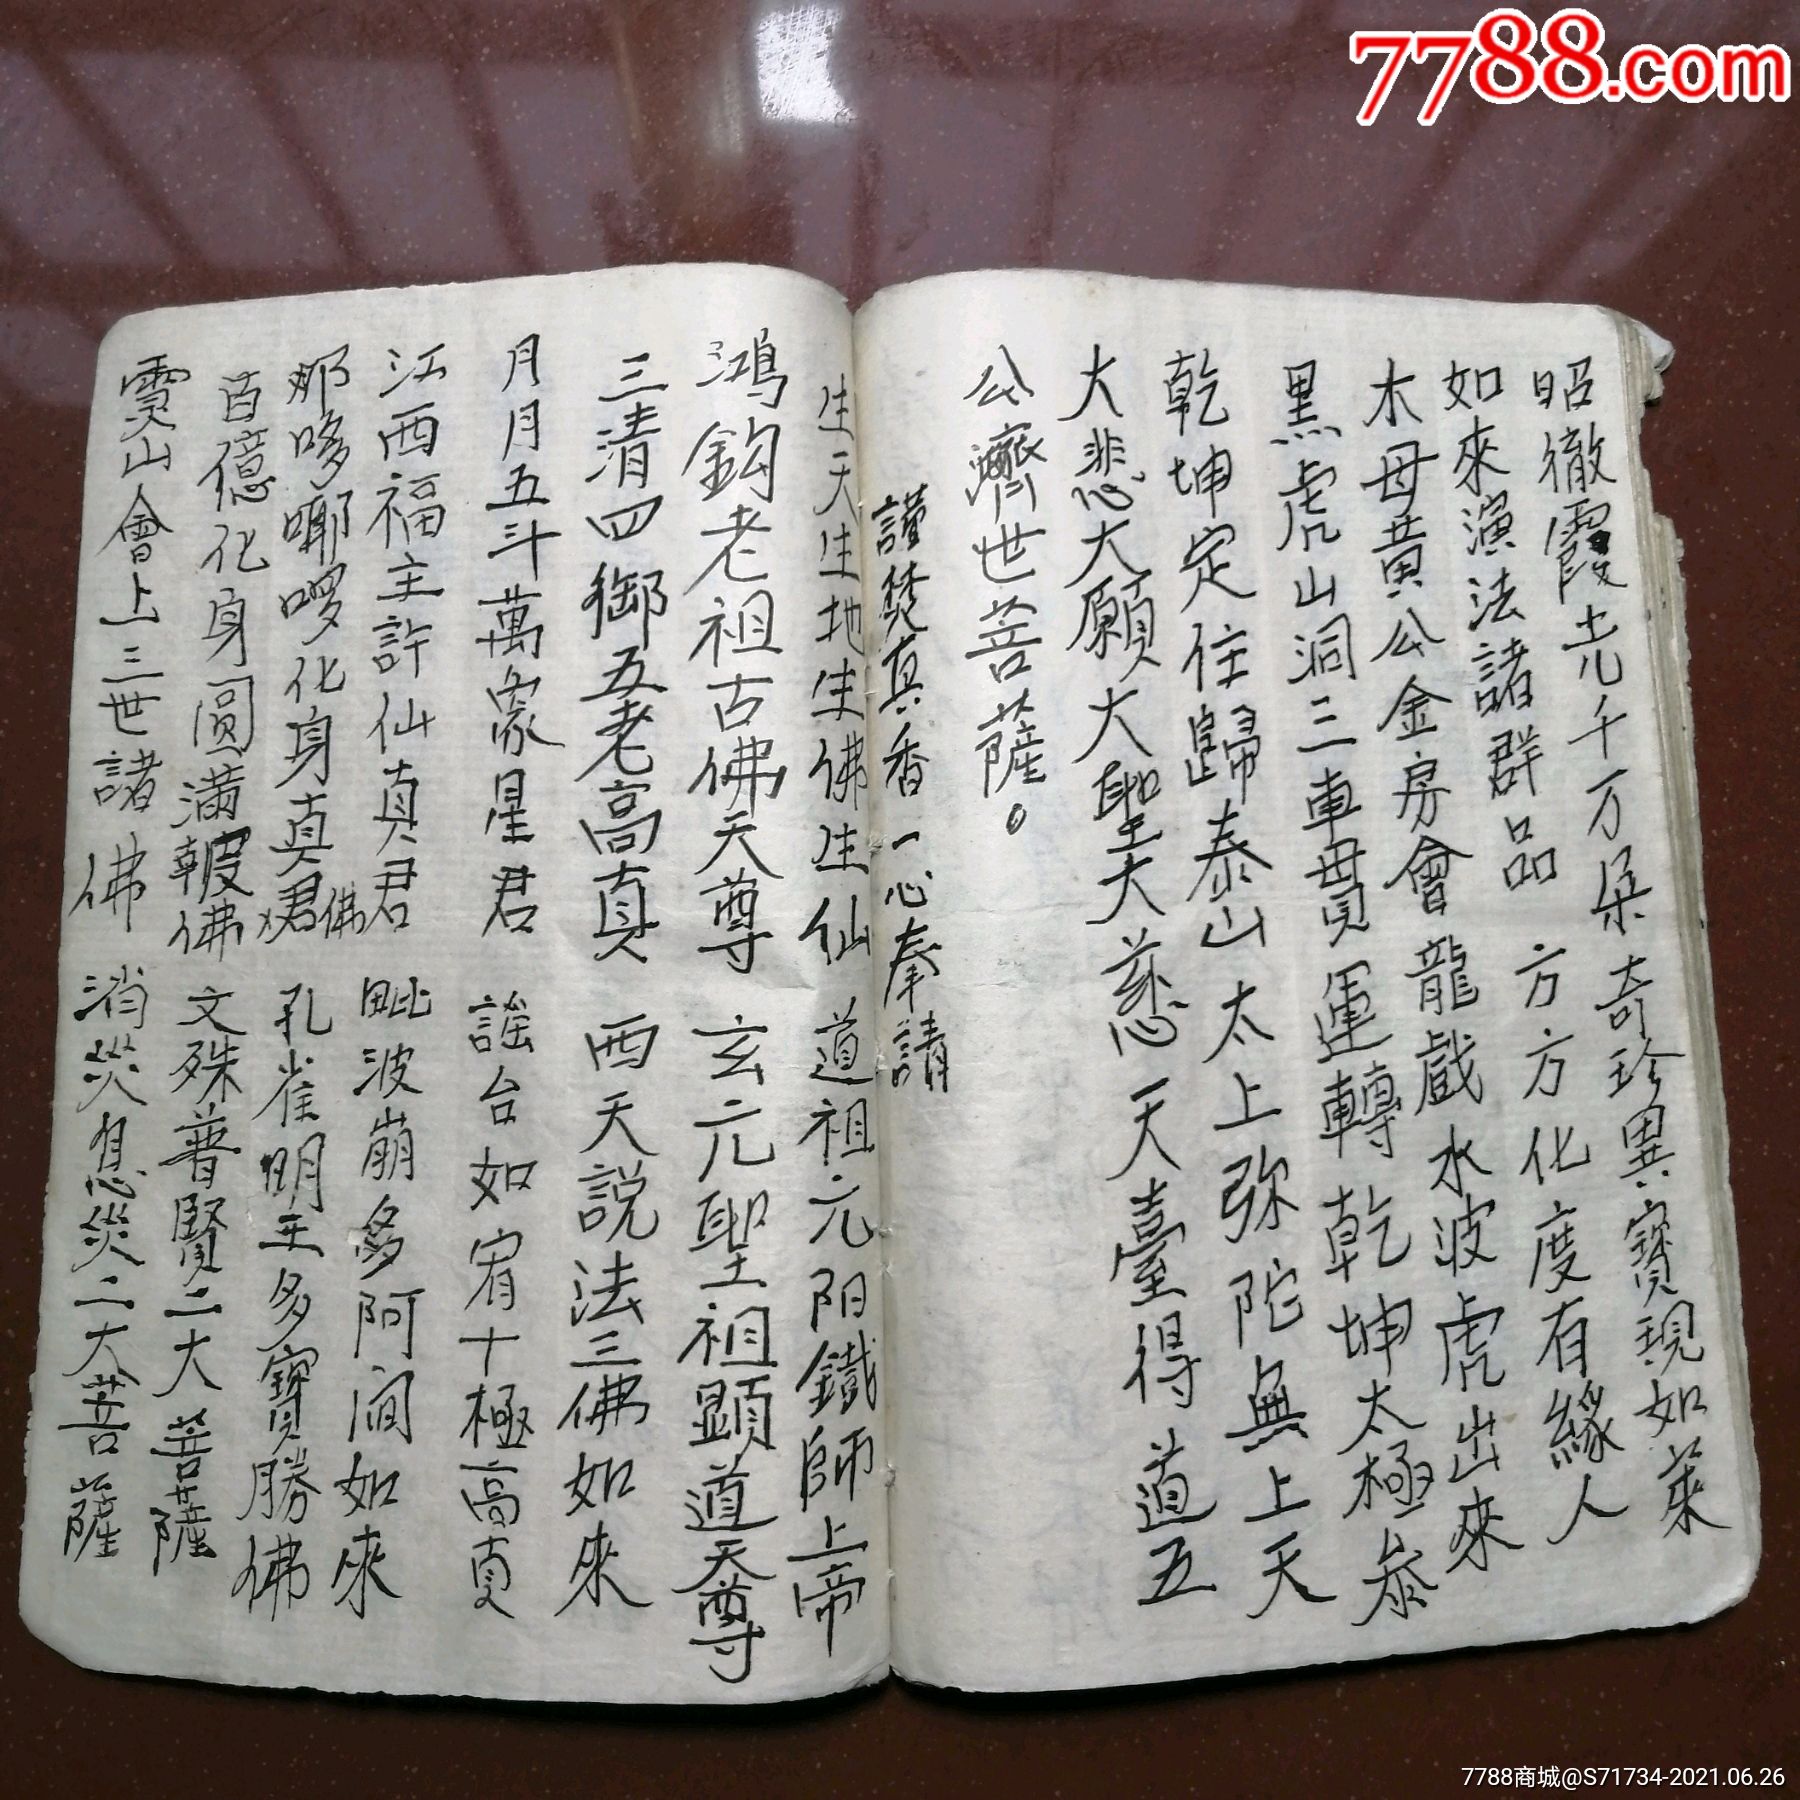 7788.com
昭徹霞光千万朵奇珍異寶現如来
如來演法諸群品 方方化度有緣人
木母黄公金房會龍戲水波虎出來
黑虎山洞三車貫運轉乾坤太極叅
乾坤定住歸泰山太上弥陀無上天
大悲大願大聖大慈 天臺得道五
公濟世菩薩。
謹焚真香一心奉請
生天生地生佛生仙 道祖元阳鐵師上帝
鴻鈞老祖古佛天尊 玄元聖祖顕道天尊
三清四御五老高真 西天説法三佛如來
月月五斗萬象星君 謡台如宥十極高真
江西福主許仙真君 毗波崩多阿閦如來
那哆哪啰化身真君佛 孔雀明王多多寶勝佛
百億化身圓滿報佛 文殊普賢二大菩薩
靈山會上三世諸佛 消災息災二大菩薩
7788商城@S71734-2021.06.26